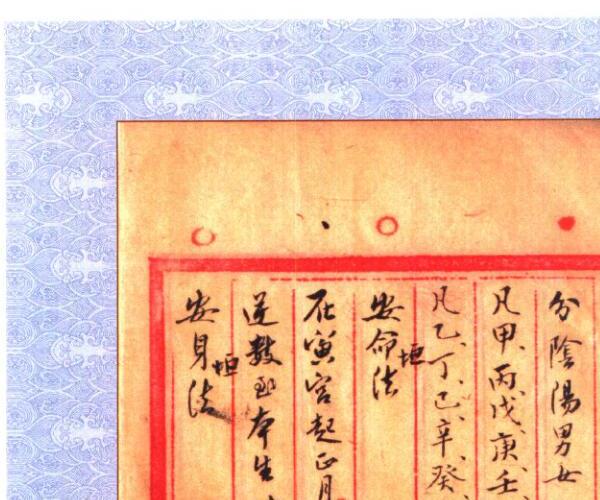 分陰陽男女
凡甲、丙、戊、庚、壬、
凡乙、丁、己、辛、癸、
安命垣法
在寅宮起正月
逆數至本生
安身垣法